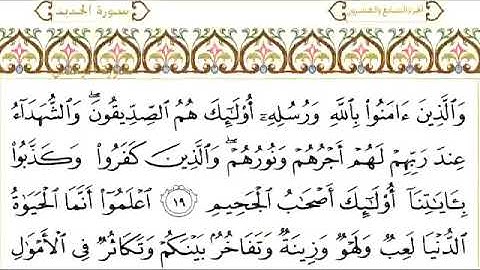 سورة الحديد الجزء السابع والعشرون
وَٱلَّذِينَ ءَامَنُوا۟ بِٱللَّهِ وَرُسُلِهِۦٓ أُو۟لَـٰٓئِكَ هُمُ ٱلصِّدِّيقُونَ ۖ وَٱلشُّهَدَآءُ
عِندَ رَبِّهِمْ لَهُمْ أَجْرُهُمْ وَنُورُهُمْ ۖ وَٱلَّذِينَ كَفَرُوا۟ وَكَذَّبُوا۟
بِـَٔايَـٰتِنَآ أُو۟لَـٰٓئِكَ أَصْحَـٰبُ ٱلْجَحِيمِ ١٩ ٱعْلَمُوٓا۟ أَنَّمَا ٱلْحَيَوٰةُ
ٱلدُّنْيَا لَعِبٌ وَلَهْوٌ وَزِينَةٌ وَتَفَاخُرٌۢ بَيْنَكُمْ وَتَكَاثُرٌ فِى ٱلْأَمْوَٰلِ